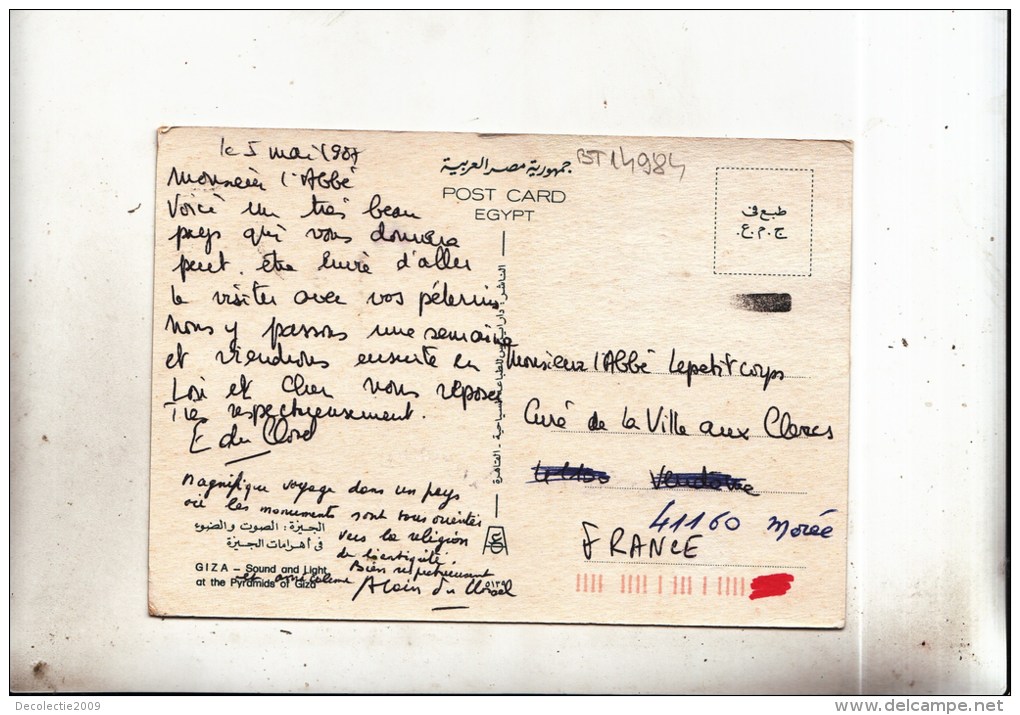 le 5 mai 1987
Monsieur l'Abbé
Voici un très beau
pays qui vous donnera
peut. être envie d'aller
le visiter avec vos pélerins
Nous y passons une semaine
et viendrons ensuite en
Loir et Cher nous reposer
Très respectueusement.
E du Closel
Magnifique voyage dans un pays
où les monuments sont tous orientés
vers la religion
de l'antiquité
Bien respectueusement
et amicalement
Alain du Closel
الجيزة : الصوت والضوء
فى أهرامات الجيزة
GIZA – Sound and Light
at the Pyramids of Giza
جمهورية مصر العربية
POST CARD
EGYPT
BT14984
طبع فى
ج.م.ع.
Monsieur l'Abbé Lepetitcorps
Curé de la Ville aux Clercs
Vendôme
41160 Morée
FRANCE
Decolectie2009
delcampe.net